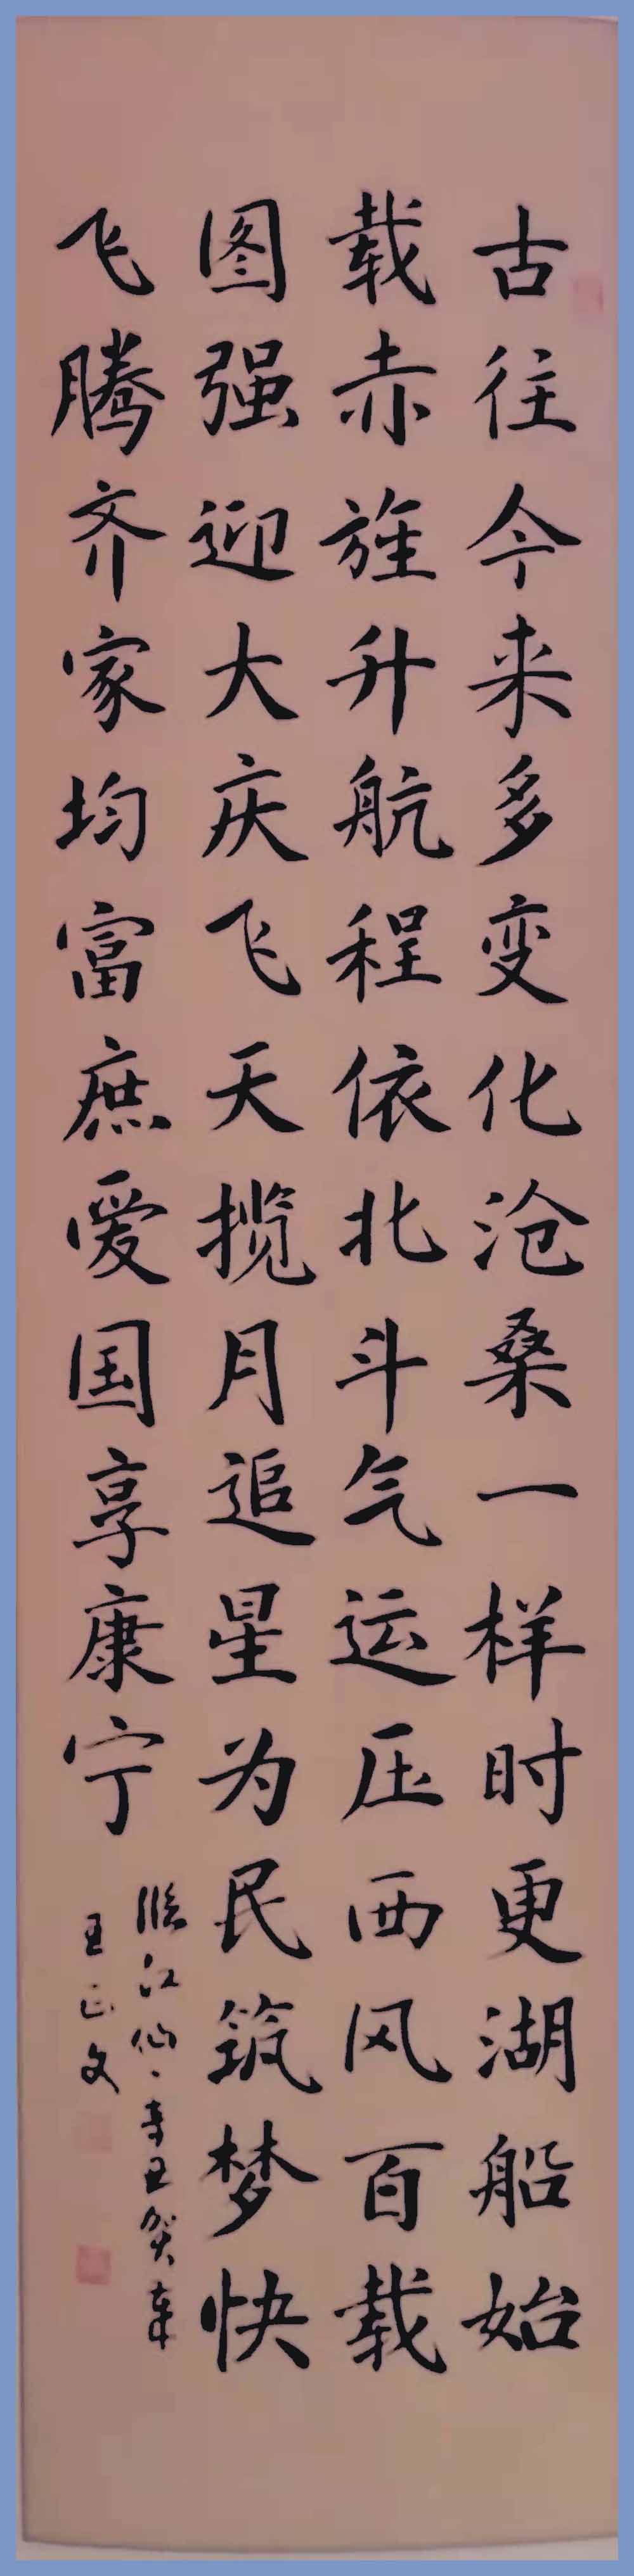 古往今来多变化沧桑一样时更湖船始
载赤旌升航程依北斗气运压西风百载
图强迎大庆飞天揽月追星为民筑梦快
飞腾齐家均富庶爱国享康宁
临江仙、辛丑贺年
王正文